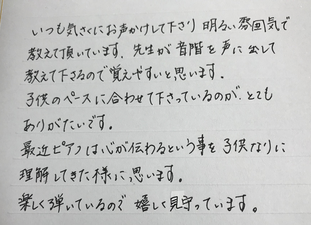 いつも気さくにお声かけして下さり 明るい雰囲気で
教えて頂いています。先生が音階を声に出して
教えて下さるので覚えやすいと思います。
子供のペースに合わせて下さっているのが、とても
ありがたいです。
最近ピアノは心が伝わるという事を子供なりに
理解してきた様に思います。
楽しく弾いているので 嬉しく見守っています。